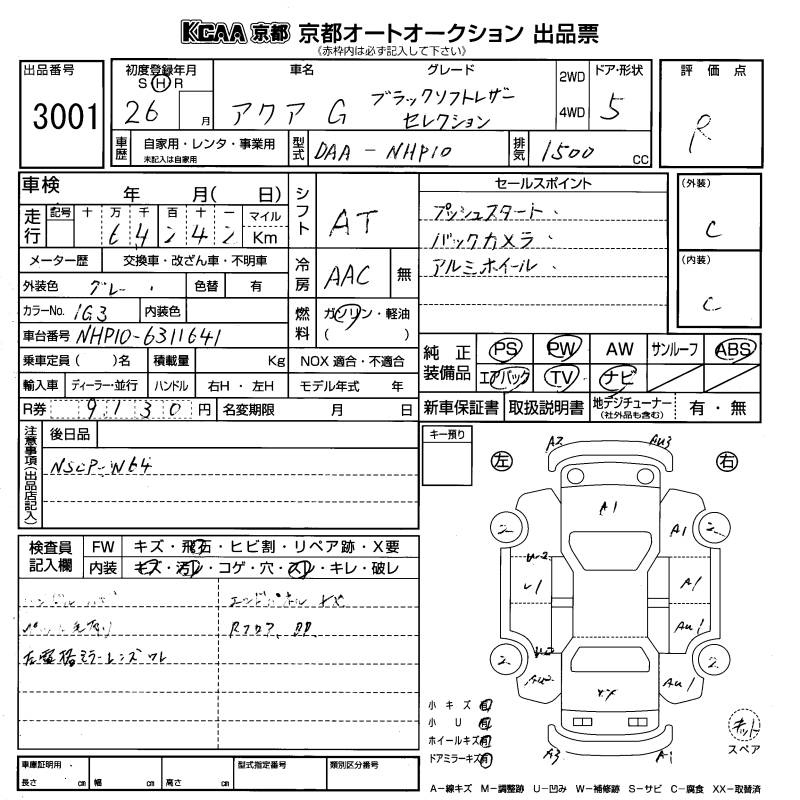 KCAA 京都 京都オートオークション 出品票
(赤枠内は必ず記入して下さい)
出品番号 3001
初度登録年月 S H R 26 月
車名 アクア
グレード G ブラックソフトレザー セレクション
2WD 4WD
ドア・形状 5
評価点 R
車歴 自家用・レンタ・事業用 未記入は自家用
型式 DAA-NHP10
排気 1500 CC
車検 年 月( 日)
走行 記号 十 万 千 百 十 一 マイル Km
6 4 2 4 2
メーター歴 交換車・改ざん車・不明車
外装色 グレー 色替 有
カラーNo. 1G3 内装色
車台番号 NHP10-6311641
乗車定員 ( )名 積載量 Kg NOX 適合・不適合
輸入車 ディーラー・並行 ハンドル 右H・左H モデル年式 年
R券 9130 円 名変期限 月 日
シフト AT
冷房 AAC 無
燃料 ガソリン・軽油 ( )
セールスポイント
プッシュスタート.
バックカメラ.
アルミホイール.
(外装) C
(内装) C
純正装備品 PS PW AW サンルーフ ABS
エアバック TV ナビ
新車保証書 取扱説明書 地デジチューナー (社外品も含む) 有・無
注意事項(出品店記入)
後日品
NSCP-W64
キー預り
左 右
検査員記入欄 FW キズ・飛石・ヒビ割・リペア跡・X要
内装 キズ・汚レ・コゲ・穴・スレ・キレ・破レ
Rフロア
A2 AU3
A1
A1
2 2
U2
U1 A1
AU1
2 2
AU1
A3 A1
小キズ 有
小U 有
ホイールキズ 有
ドアミラーキズ 有
キット
スペア
車庫証明用 長さ cm 幅 cm 高さ cm
型式指定番号
類別区分番号
A-線キズ M-調整跡 U-凹み W-補修跡 S-サビ C-腐食 XX-取替済